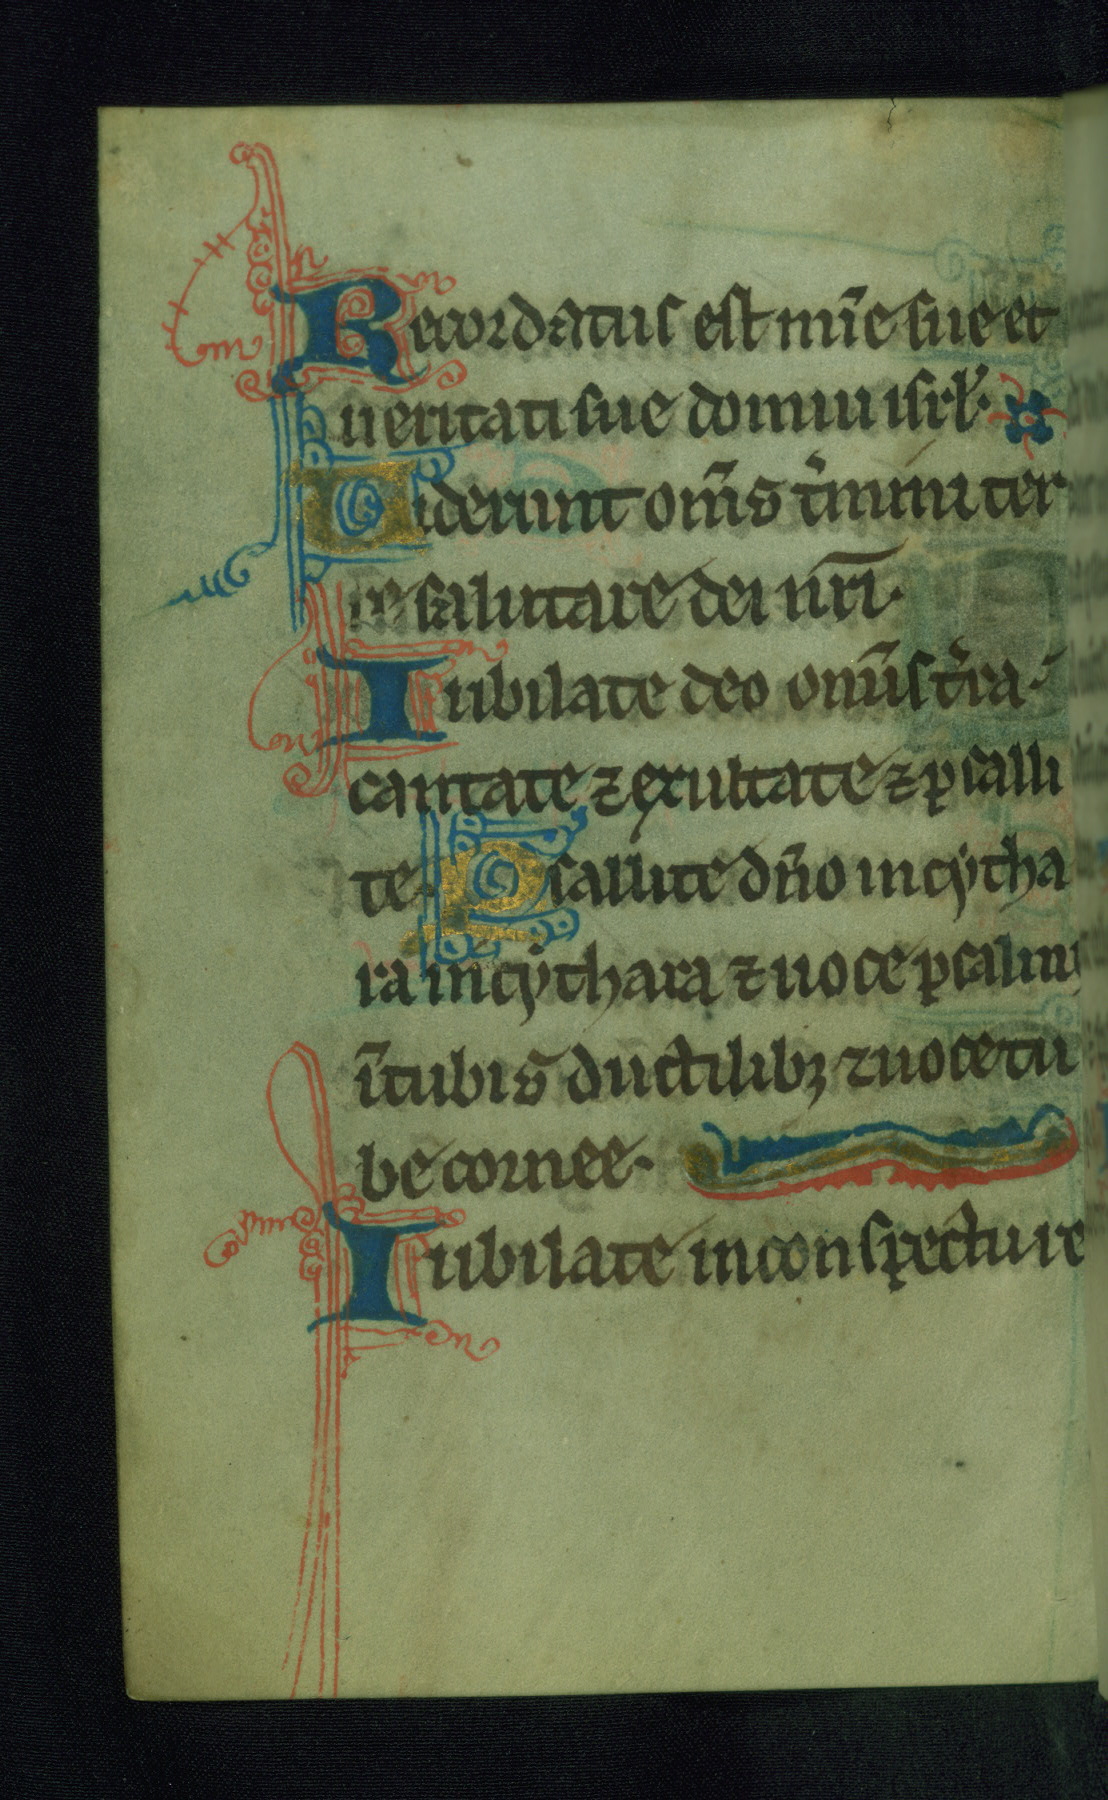 Recordatus est mīe sue et
ueritati sue domui isrl'.
Uiderunt om̄s t'mini ter
re salutare dei nr̄i.
Iubilate deo omīs t'ra
cantate ⁊ exultate ⁊ psalli
te. Psallite dn̄o in cẏtha
ra in cẏthara ⁊ uoce psalmi
ī tubis ductilibꝫ ⁊ uoce tu
be cornee.
Iubilate in conspectu re